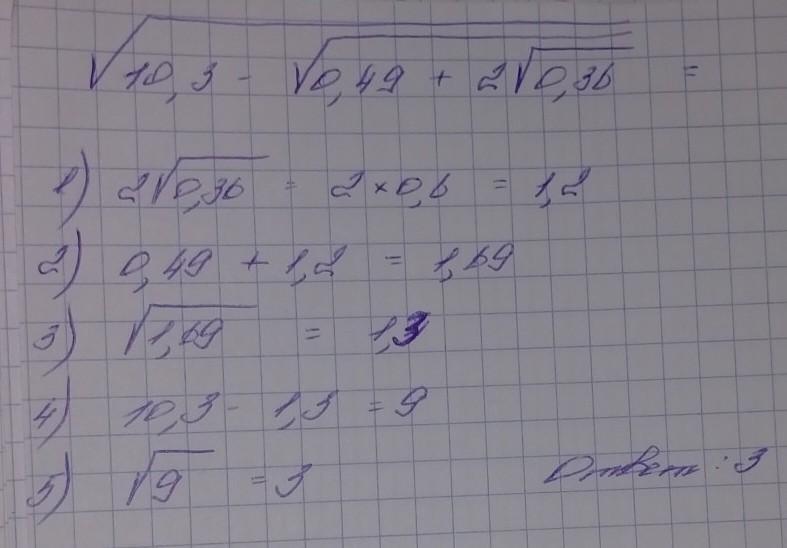 √(10,3 - √(0,49 + 2√0,36)) =
1) 2√0,36 = 2 × 0,6 = 1,2
2) 0,49 + 1,2 = 1,69
3) √1,69 = 1,3
4) 10,3 - 1,3 = 9
5) √9 = 3 Ответ: 3